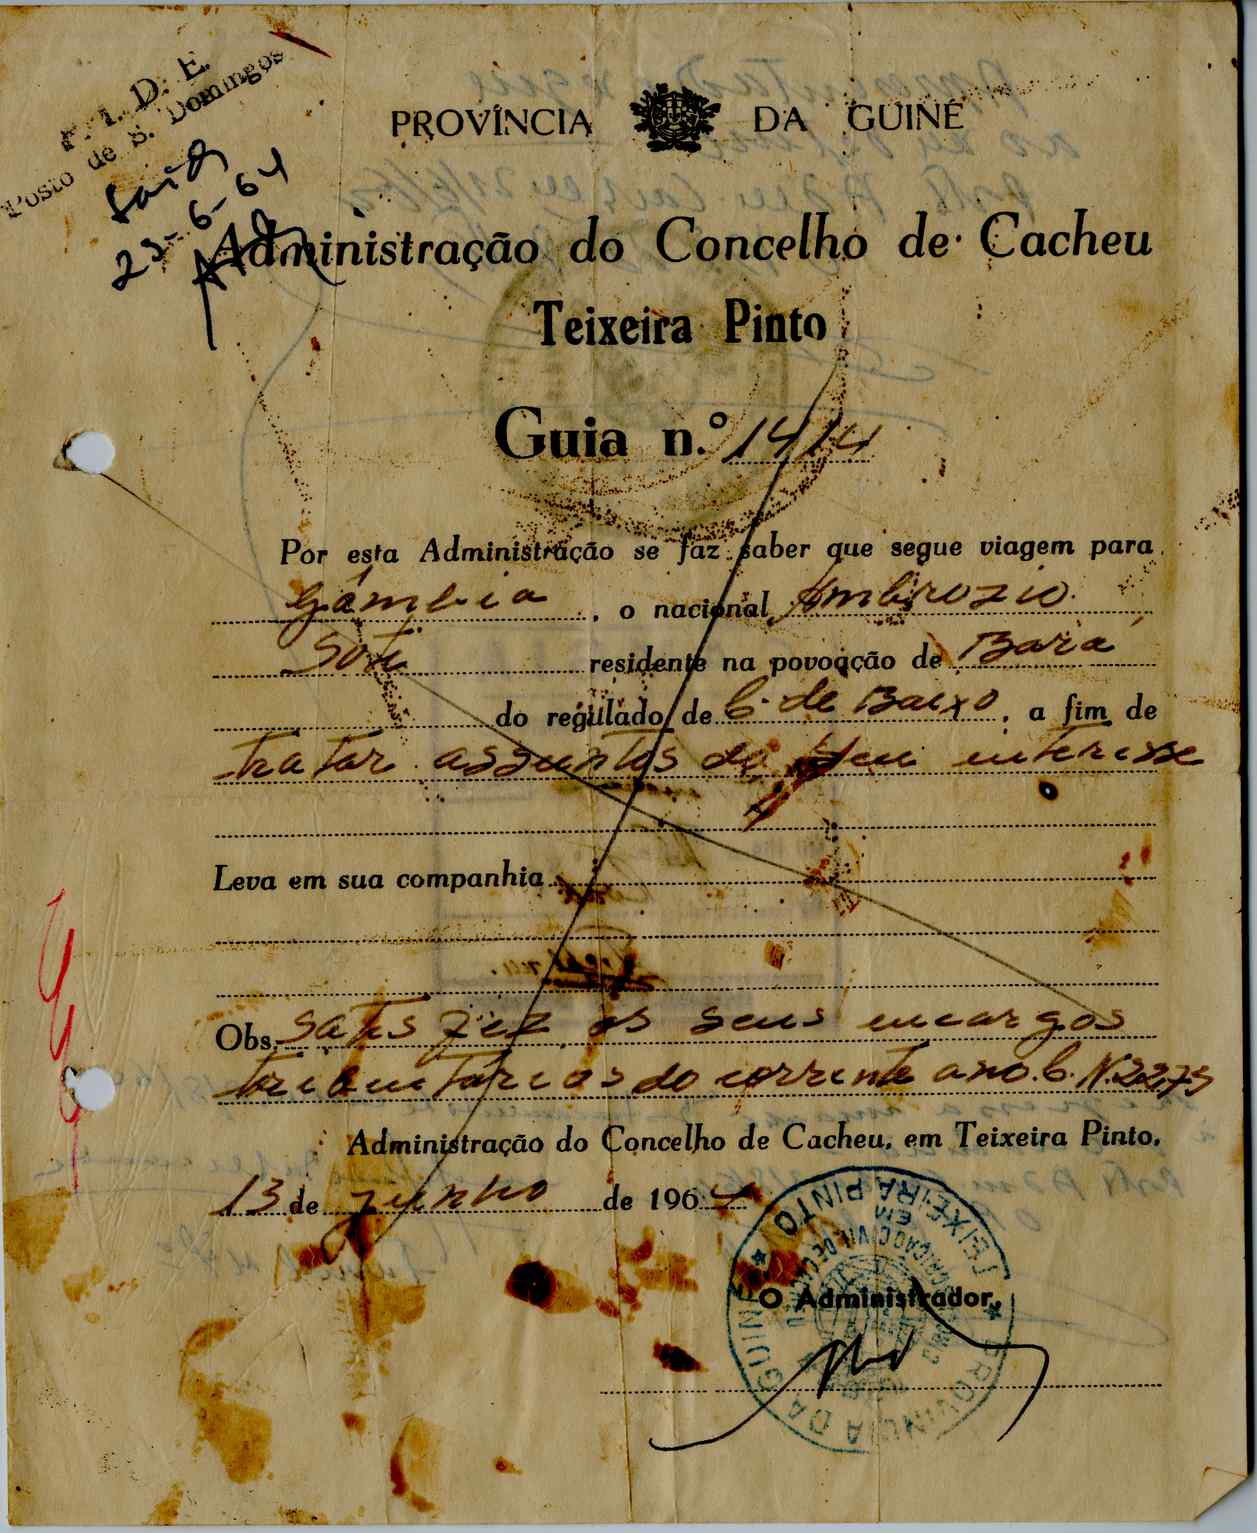 P. I. D. E.
Posto de S. Domingos
Saída
23-6-64
PROVÍNCIA DA GUINÉ
Administração do Concelho de Cacheu
Teixeira Pinto
Guia n.º 1414
Por esta Administração se faz saber que segue viagem para
Gâmbia, o nacional Ambrozio
residente na povoação de Bará
do regulado de C. de Baixo, a fim de
tratar assuntos do seu interesse
Leva em sua companhia
Obs. satisfez os seus encargos
tributarios do corrente ano. C. N. 2275
Administração do Concelho de Cacheu, em Teixeira Pinto,
13 de Junho de 1964
O Administrador,
PROVINCIA DA GUINÉ
TEIXEIRA PINTO
EM